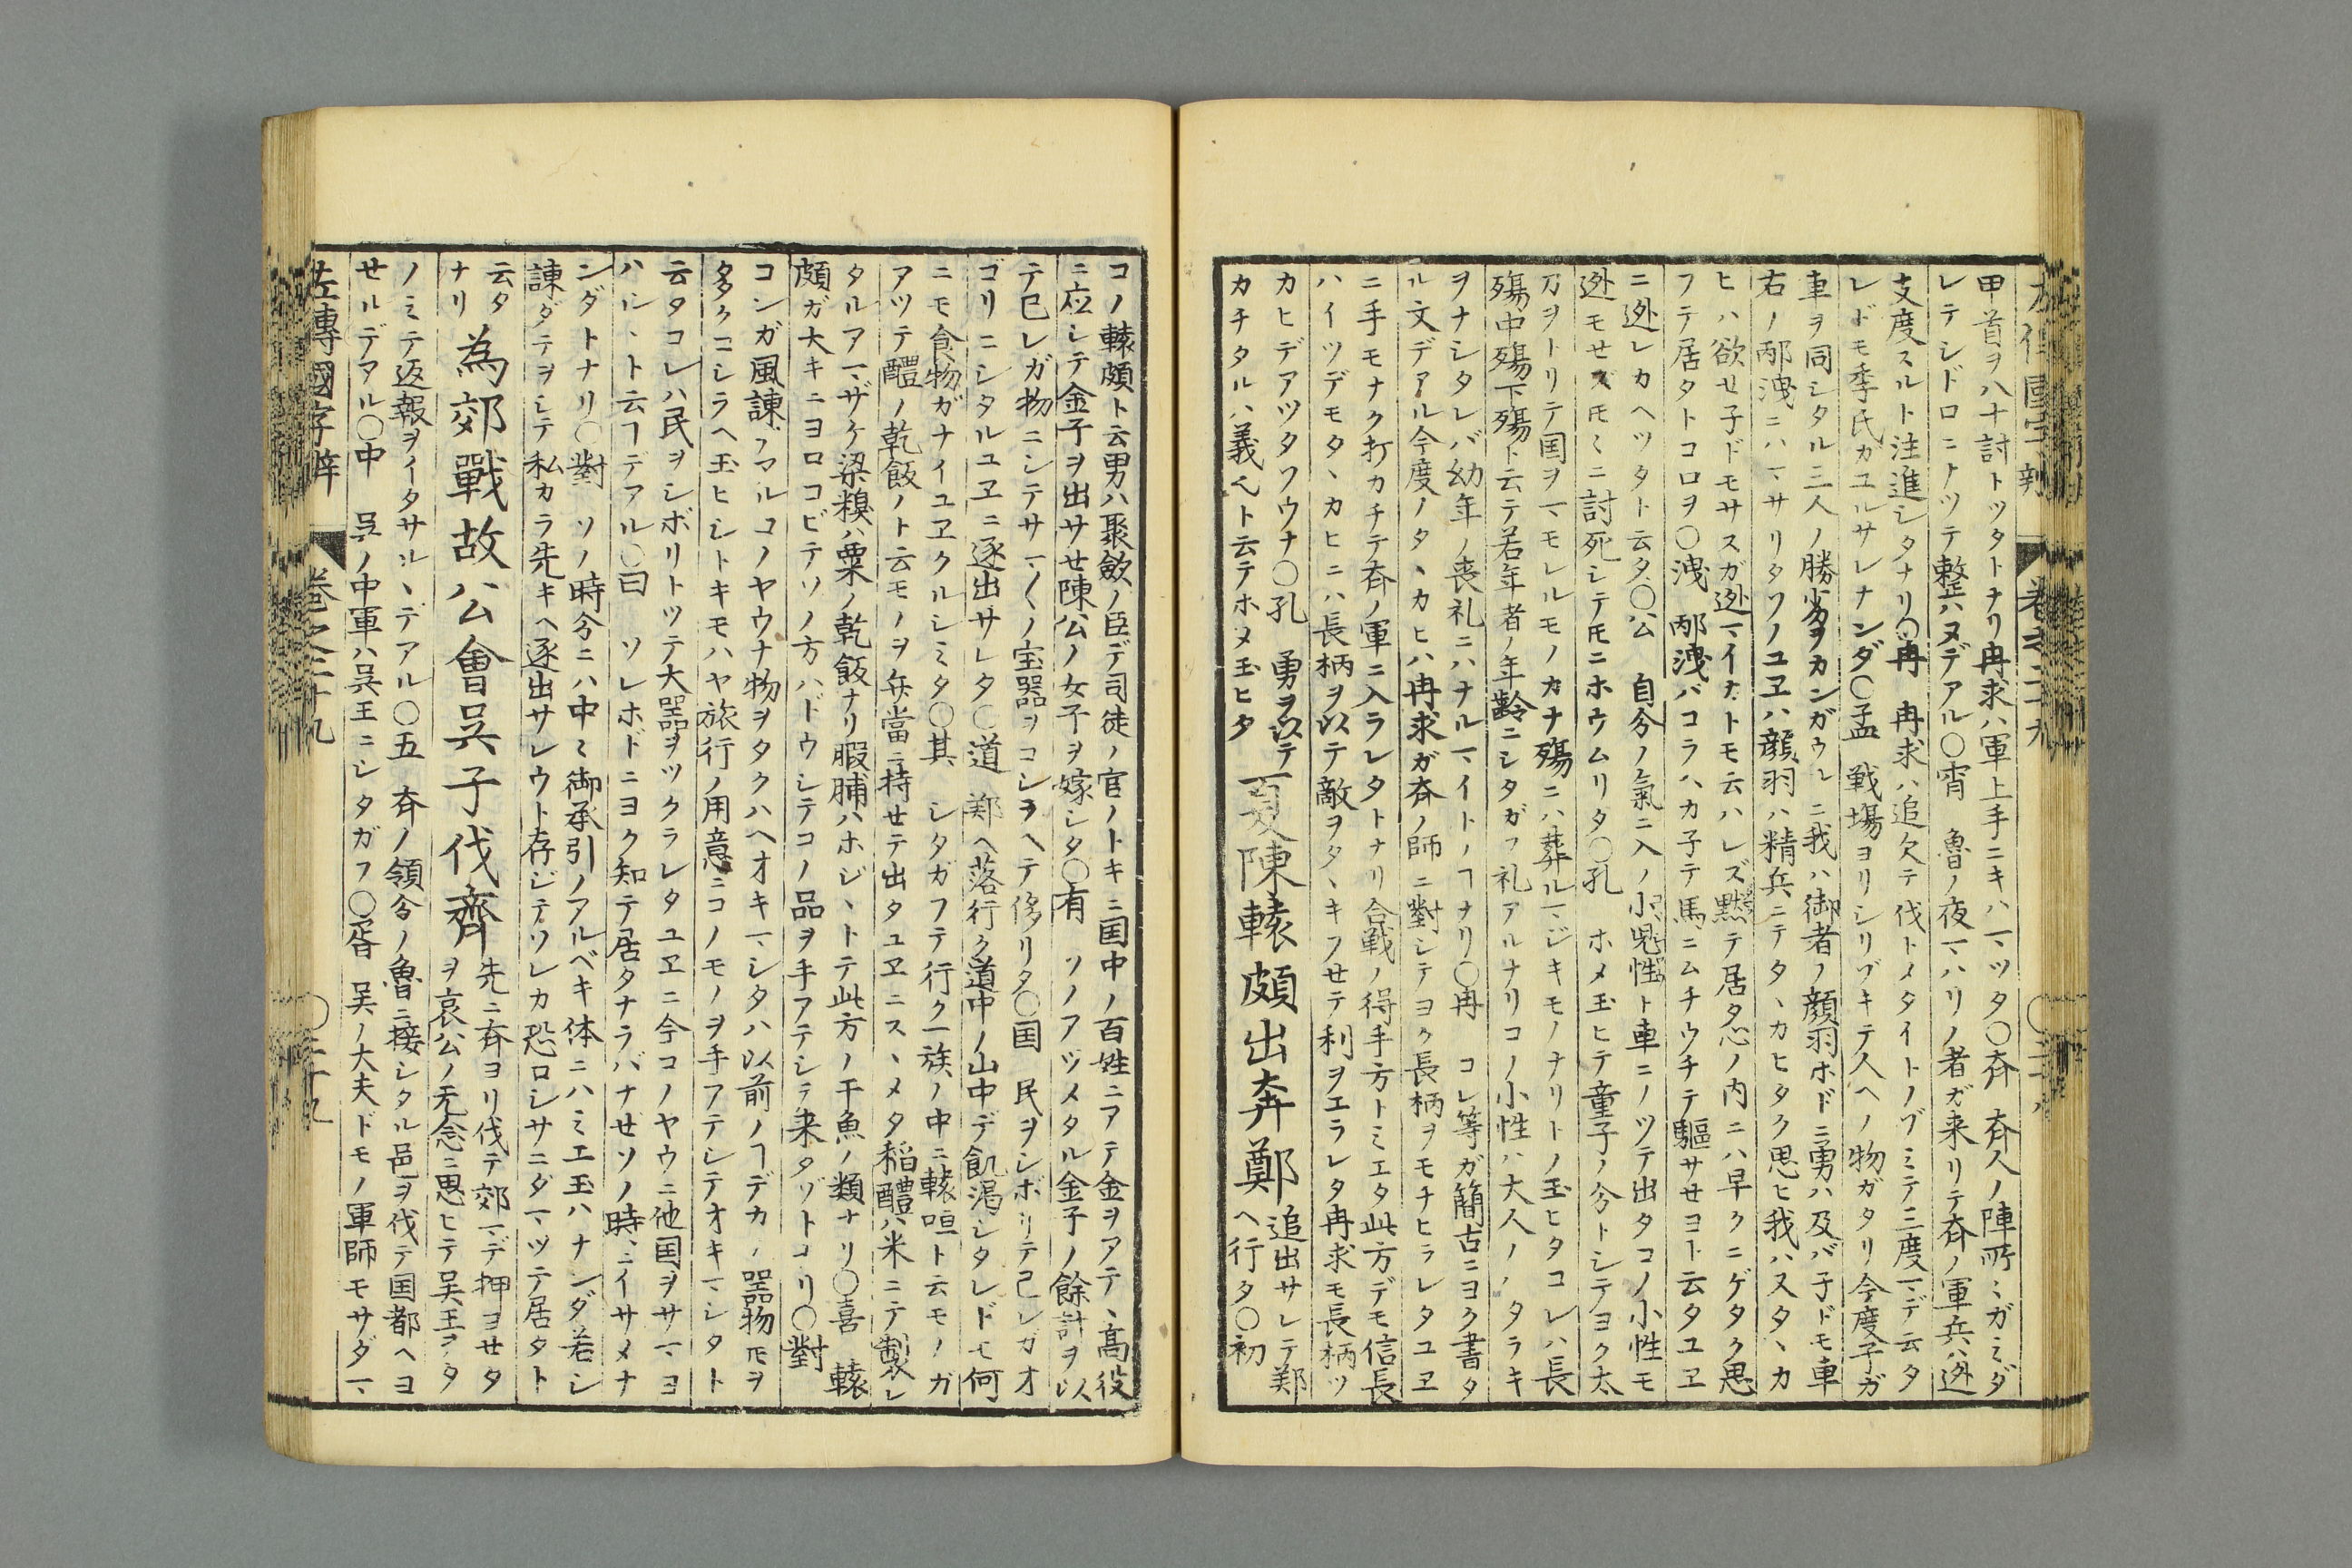 甲首ヲ八十討トツタトナリ冉求ハ軍上手ニキハマツタ○斉　斉人ノ陣所ミガミダ
レテシドロニナツテ整ハヌデアル○宵　魯ノ夜マハリノ者ガ来リテ斉ノ軍兵ハ迯
支度スルト注進シタナリ○冉　冉求ハ追欠テ伐トメタイトノゾミテ三度マデ云タ
レドモ季氏カユルサレナンダ○孟　戦場ヨリシリゾキテ人ヘノ物ガタリ今度子ガ
車ヲ同シタル三人ノ勝劣ヲカンガウルニ我ハ御者ノ顔羽ホドニ勇ハ及バ子ドモ車
右ノ邴洩ニハマサリタソノユヱハ顔羽ハ精兵ニテタヽカヒタク思ヒ我ハ又タヽカ
ヒハ欲セ子ドモサスガ迯マイナトモ云ハレズ黙テ居タ心ノ内ニハ早クニゲタク思
フテ居タトコロヲ○洩　邴洩バコラハカ子テ馬ニムチウチテ驅サセヨト云タユヱ
ニ迯レカヘツタト云タ○公　自分ノ氣ニ入ノ小児性ト車ニノツテ出タコノ小性モ
迯モセズ𪜈ミニ討死シテ𪜈ニホウムリタ○孔　ホメ玉ヒテ童子ノ分トシテヨク太
刀ヲトリテ国ヲマモレルモノカナ殤ニハ葬ルマジキモノナリトノ玉ヒタコレハ長
殤中殤下殤ト云テ若年者ノ年齢ニシタガフ礼アルナリコノ小性ハ大人ノハタラキ
ヲナシタレバ幼年ノ喪礼ニハナルマイトノヿナリ○冉　コレ等ガ簡古ニヨク書タ
ル文デアル今度ノタヽカヒハ冉求ガ斉ノ師ニ對シテヨク長柄ヲモチヒラレタユヱ
ニ手モナク打カチテ斉ノ軍ニ入ラレタトナリ合戦ノ得手方トミエタ此方デモ信長
ハイツデモタヽカヒニハ長柄ヲ以テ敵ヲタヽキフセテ利ヲエラレタ冉求モ長柄ツ
カヒデアツタソウナ○孔　勇ヲ以テ
カチタルハ義也ト云テホメ玉ヒタ
夏陳轅頗出奔鄭
追出サレテ鄭
ヘ行タ○初
コノ轅頗ト云男ハ聚斂ノ臣デ司徒ノ官ノトキニ国中ノ百姓ニアテ金ヲアテヽ高役
ニ応シテ金子ヲ出サセ陳公ノ女子ヲ嫁シタ○有　ソノアツメタル金子ノ餘計ヲ以
テ己レガ物ニシテサマ〳〵ノ宝器ヲコシラヘテ侈リタ○国　民ヲシボリテ己レガオ
ゴリニシタルユヱニ逐出サレタ○道　鄭ヘ落行ク道中ノ山中デ飢渇シタレドモ何
ニモ食物ガナイユヱクルシミタ○其　シタガフテ行ク一族ノ中ニ轅咺ト云モノガ
アツテ醴ノ乾飯ノト云モノヲ弁當ニ持セテ出タユヱニスヽメタ稲醴ハ米ニテ製レ
タルアマザケ梁糗ハ粟ノ乾飯ナリ暇脯ハホジヽトテ此方ノ干魚ノ類ナリ○喜　轅
頗ガ大キニヨロコビテソノ方ハドウシテコノ品ヲ手アテシテ来タゾトコリ○對
コンガ風諌フマルコノヤウナ物ヲタクハヘオキマシタハ以前ノヿデカノ器物𪜈ヲ
多クコシラヘ玉ヒシトキモハヤ旅行ノ用意ニコノモノヲ手フテシテオキマシタト
云タコレハ民ヲシボリトツテ大器ヲツクラレタユヱニ今コノヤウニ他国ヲサマヨ
ハルヽト云ヿデアル○曰　ソレホドニヨク知テ居タナラバナゼソノ時ニイサメナ
ンダトナリ○對　ソノ時分ニハ中ミ御承引ノアルベキ体ニハミエ玉ハナンダ若シ
諌ダテヲシテ私カラ先キヘ逐出サレウト存ジテソレカ恐ロシサニダマツテ居タト
云タ
ナリ
為郊戰故公會呉子伐齊
先ニ斉ヨリ伐テ郊マデ押ヨセタ
ヲ哀公ノ无念ニ思ヒテ呉王ヲタ
ノミテ返報ヲイタサルヽデアル○五　斉ノ領分ノ魯ニ接シタル邑ヲ伐テ国都ヘヨ
セルデアル○中　呉ノ中軍ハ呉王ニシタガフ○胥　呉ノ大夫ドモノ軍師モサダマ
左傳國字辯　巻之二十九